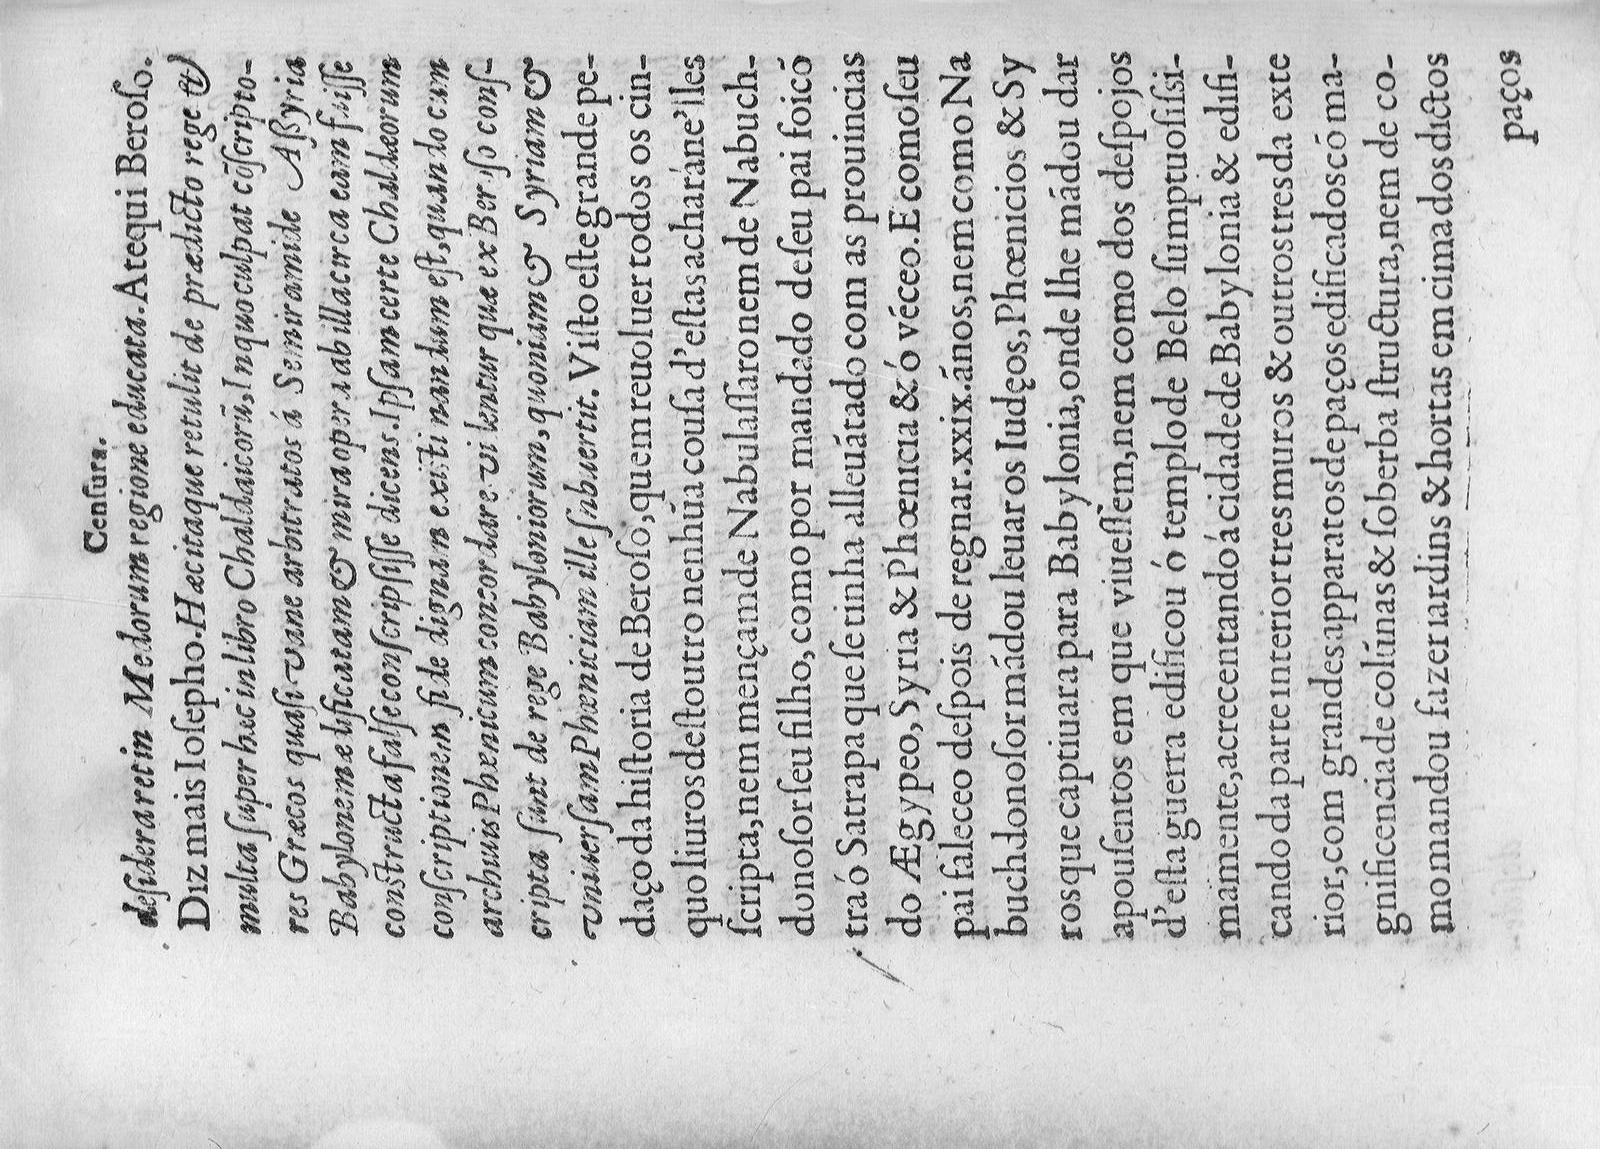 Cenſura.
deſideraret in Medorum regione educata. Atequi Beroſo.
Diz mais Ioſepho. Hæc itaque retulit de prædicto rege &
multa ſuper hec in libro Chaldaicorũ, In quo culpat cõſcripto-
res Græcos quaſi vane arbitratos á Semiramide Aßyria
Babylonem ædificatam & mira opera ab illa circa eam fuiſſe
constructa falſſe conſcripſiſſe dicens. Ipſam certe Chaldæorum
conſcriptionem fide dignam existi nandum eſt, quando cum
archiuis Phenicum concordare videntur quæ ex Beroſo conſ-
cripta ſunt de rege Babyloniorum, quonium & Syriam &
vniuerſam Phœniciam ille ſubuertit. Viſto eſte grande pe-
daço da hiſtoria de Beroſo, quem reuoluer todos os cin-
quo liuros deſtoutro nenhũa couſa d'eſtas acharáne'lles
ſcripta, nem mençam de Nabulaſſaro nem de Nabuch-
donoſor ſeu filho, como por mandado de ſeu pai foi cõ
tra ó Satrapa que ſe tinha alleuátado com as prouincias
do Ægypeo, Syria & Phœnicia & ó véceo. E como ſeu
pai faleceo deſpois de regnar. xxix. ános, nem como Na
buchdonoſor mádou leuar os Iudęos, Phœnicios & Sy
ros que captiuara para Babylonia, onde lhe mádou dar
apouſentos em que viueſſem, nem como dos deſpojos
d'eſta guerra edificou ó templo de Belo ſumptuoſiſsi-
mamente, acrecentando á cidade de Babylonia & edifi-
cando da parte interior tres muros & outros tres da exte
rior, com grandes apparatos de paços edificados có ma-
gnificencia de colúnas & ſoberba ſtructura, nem de co-
mo mandou fazer iardins & hortas em cima dos dictos
paços